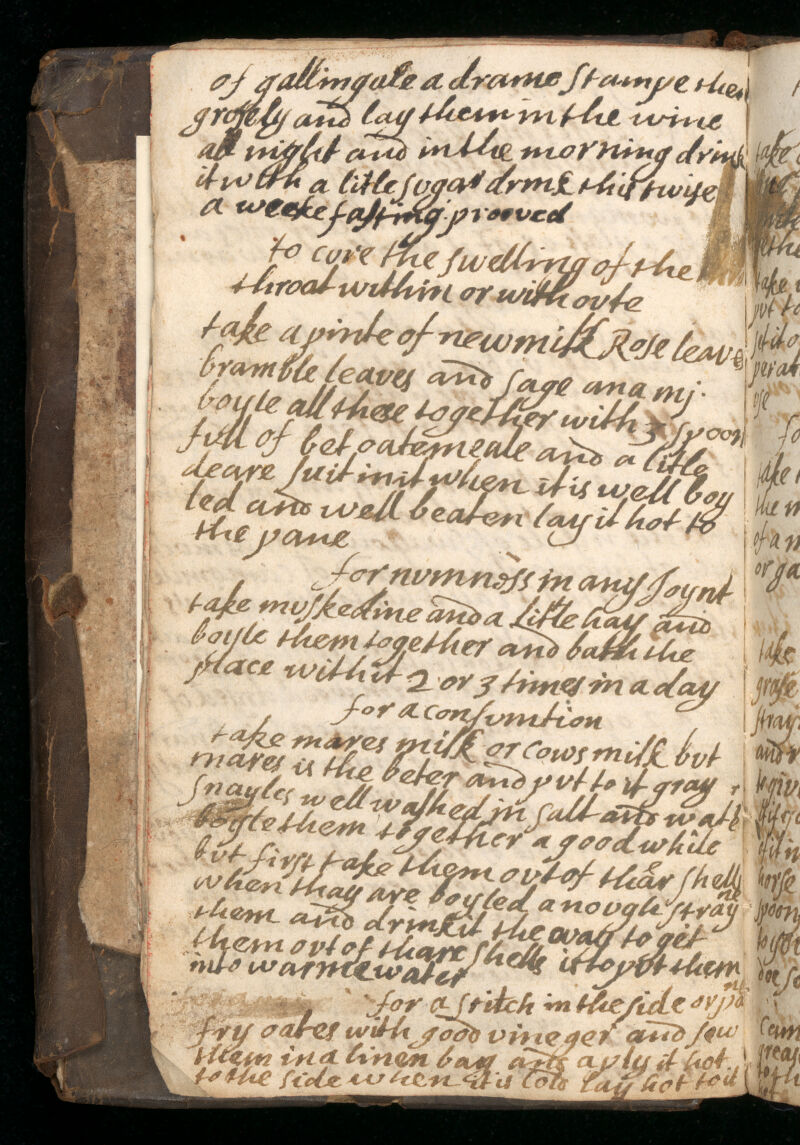 of gallingale a drame stampe them
grosely and lay them in the wine
all night and in the morning drink
it with a litle sugar drink this twise
a weeke fasting prooved
to cure the swelling of the
throat within or withoute
take a pinte of new milk Rose leaves
bramble leaves and sage ana mj.
boyle all these together with 3 spoon
full of bet oatemeale and a litle
deare suit in it when it is well boy
led and well beaten lay it hot to
the pane
for numness in any Joynt
take muskedine and a little hay and
boyle them together and bath the
place with it 2 or 3 times in a day
for a consumtion
take mares milk or cows milk but
mares is the beter and put to it gray
snayles well washed in salt and water
boyle them together a good while
but first take them out of thar shells
when thay are boyled anough strayne
them and drink it the way to get
them out of thare shells is to put them
into warme water
for a stitch in the side or pane
fry oates with good vineger and sow
them in a linen bag and aply it hot
to the side when it is cold lay hot to it